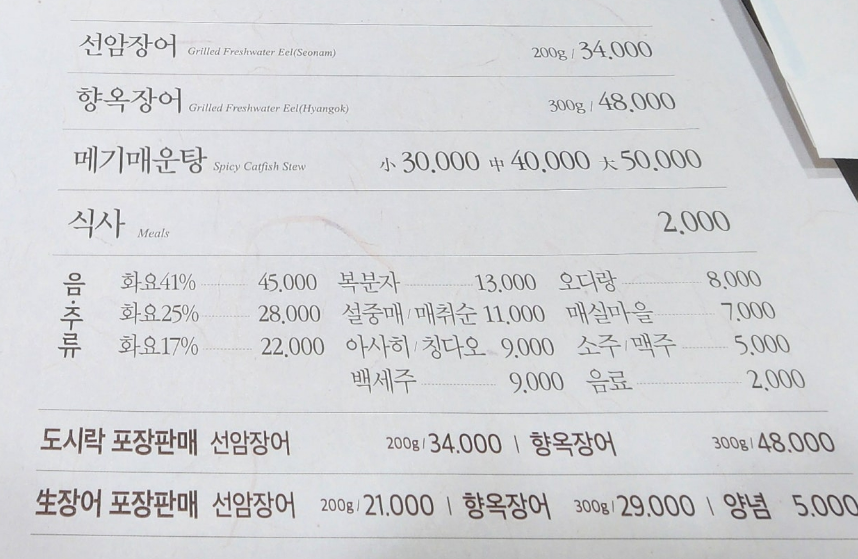 선암장어 Grilled Freshwater Eel(Seonam) 200g / 34,000
향옥장어 Grilled Freshwater Eel(Hyangok) 300g / 48,000
메기매운탕 Spicy Catfish Stew 小 30,000 中 40,000 大 50,000
식사 Meals 2,000
음·주류
화요41% 45,000 복분자 13,000 오디랑 8,000
화요25% 28,000 설중매/매취순 11,000 매실마을 7,000
화요17% 22,000 아사히/칭다오 9,000 소주/맥주 5,000
백세주 9,000 음료 2,000
도시락 포장판매 선암장어 200g/34,000 | 향옥장어 300g/48,000
生장어 포장판매 선암장어 200g/21,000 | 향옥장어 300g/29,000 | 양념 5,000